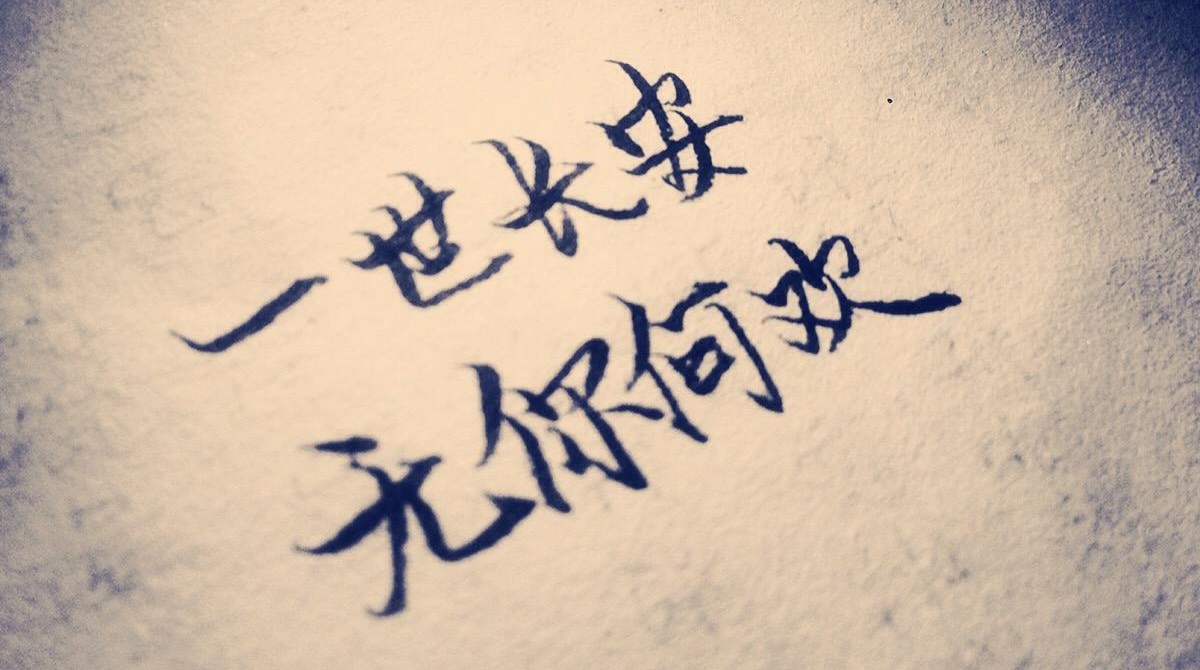 一世长安
无你何欢